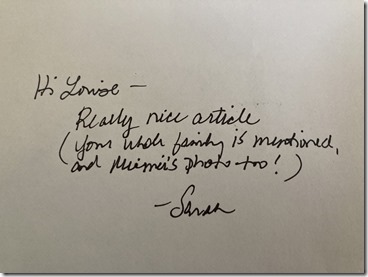 Hi Louise –
Really nice article
(Your whole family is mentioned,
and Mimi's photo too!)
– Sarah